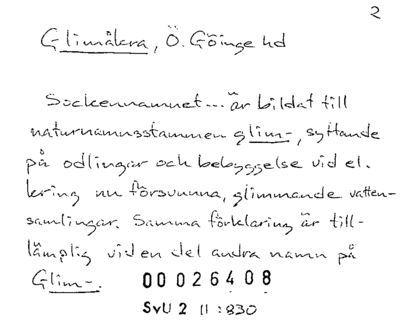 2
Glimåkra, Ö. Göinge hd
Sockennamnet... är bildat till
naturnamnsstammen glim-, syftande
på odlingar och bebyggelse vid el.
kring nu försvunna, glimmande vatten-
samlingar. Samma förklaring är till-
lämplig vid en del andra namn på
Glim-.
00026408
SvU 2 11:830